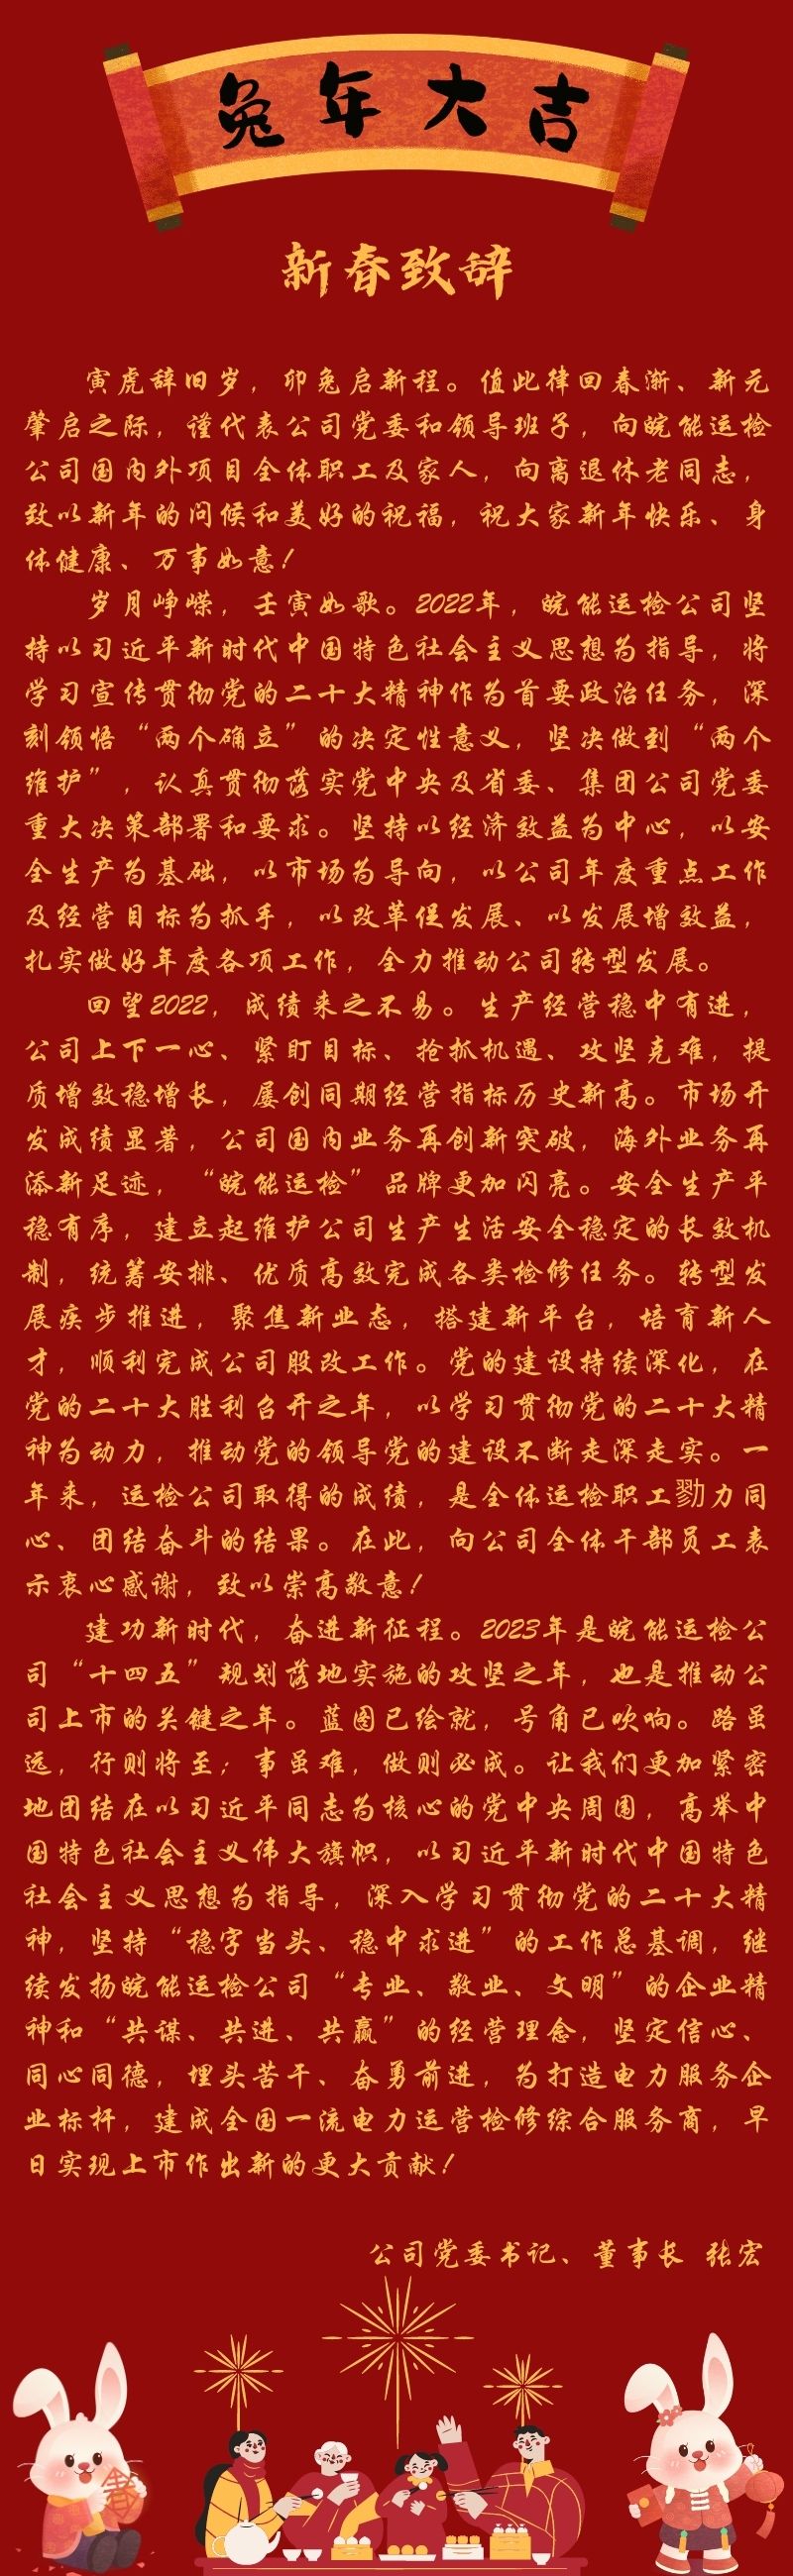 兔年大吉
新春致辞
寅虎辞旧岁，卯兔启新程。值此律回春渐、新元
肇启之际，谨代表公司党委和领导班子，向皖能运检
公司国内外项目全体职工及家人，向离退休老同志，
致以新年的问候和美好的祝福，祝大家新年快乐、身
体健康、万事如意！
岁月峥嵘，壬寅如歌。2022年，皖能运检公司坚
持以习近平新时代中国特色社会主义思想为指导，将
学习宣传贯彻党的二十大精神作为首要政治任务，深
刻领悟“两个确立”的决定性意义，坚决做到“两个
维护”，认真贯彻落实党中央及省委、集团公司党委
重大决策部署和要求。坚持以经济效益为中心，以安
全生产为基础，以市场为导向，以公司年度重点工作
及经营目标为抓手，以改革促发展、以发展增效益，
扎实做好年度各项工作，全力推动公司转型发展。
回望2022，成绩来之不易。生产经营稳中有进，
公司上下一心、紧盯目标、抢抓机遇、攻坚克难，提
质增效稳增长，屡创同期经营指标历史新高。市场开
发成绩显著，公司国内业务再创新突破，海外业务再
添新足迹，“皖能运检”品牌更加闪亮。安全生产平
稳有序，建立起维护公司生产生活安全稳定的长效机
制，统筹安排、优质高效完成各类检修任务。转型发
展疾步推进，聚焦新业态，搭建新平台，培育新人
才，顺利完成公司股改工作。党的建设持续深化，在
党的二十大胜利召开之年，以学习贯彻党的二十大精
神为动力，推动党的领导党的建设不断走深走实。一
年来，运检公司取得的成绩，是全体运检职工勠力同
心、团结奋斗的结果。在此，向公司全体干部员工表
示衷心感谢，致以崇高敬意！
建功新时代，奋进新征程。2023年是皖能运检公
司“十四五”规划落地实施的攻坚之年，也是推动公
司上市的关键之年。蓝图已绘就，号角已吹响。路虽
远，行则将至；事虽难，做则必成。让我们更加紧密
地团结在以习近平同志为核心的党中央周围，高举中
国特色社会主义伟大旗帜，以习近平新时代中国特色
社会主义思想为指导，深入学习贯彻党的二十大精
神，坚持“稳字当头、稳中求进”的工作总基调，继
续发扬皖能运检公司“专业、敬业、文明”的企业精
神和“共谋、共进、共赢”的经营理念，坚定信心、
同心同德，埋头苦干、奋勇前进，为打造电力服务企
业标杆，建成全国一流电力运营检修综合服务商，早
日实现上市作出新的更大贡献！
公司党委书记、董事长 张宏
春